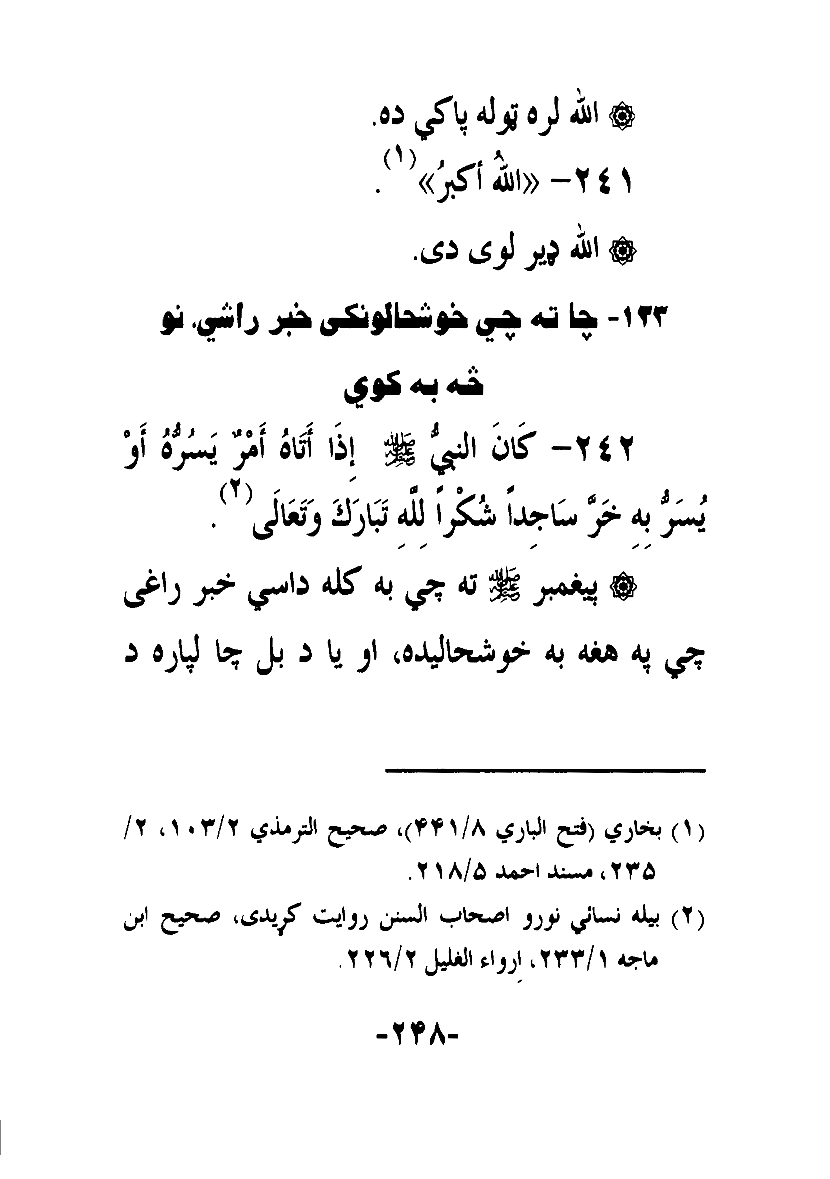 ۞ الله لره ټوله پاکي ده.
٢٤١– «اللهُ أكبرُ»(١).
۞ الله ډير لوی دی.
١٢٣- چا ته چي خوشحالونکی خبر راشي، نو
څه به کوي
٢٤٢– كَانَ النبيُّ ﷺ إِذَا أَتَاهُ أَمْرٌ يَسُرُّهُ أَوْ
يُسَرُّ بِهِ خَرَّ سَاجِداً شُكْراً لِلَّهِ تَبَارَكَ وَتَعَالَى(٢).
۞ پيغمبر ﷺ ته چي به کله داسي خبر راغی
چي په هغه به خوشحاليده، او يا د بل چا لپاره د
(١) بخاري (فتح الباري ۴۴١/٨)، صحيح الترمذي ١٠٣/٢، ٢/
٢٣۵، مسند احمد ٢١٨/۵.
(٢) بيله نسائي نورو اصحاب السنن روايت کړيدی، صحيح ابن
ماجه ٢٣٣/١، إرواء الغليل ٢٢٦/٢.
-٢۴٨-